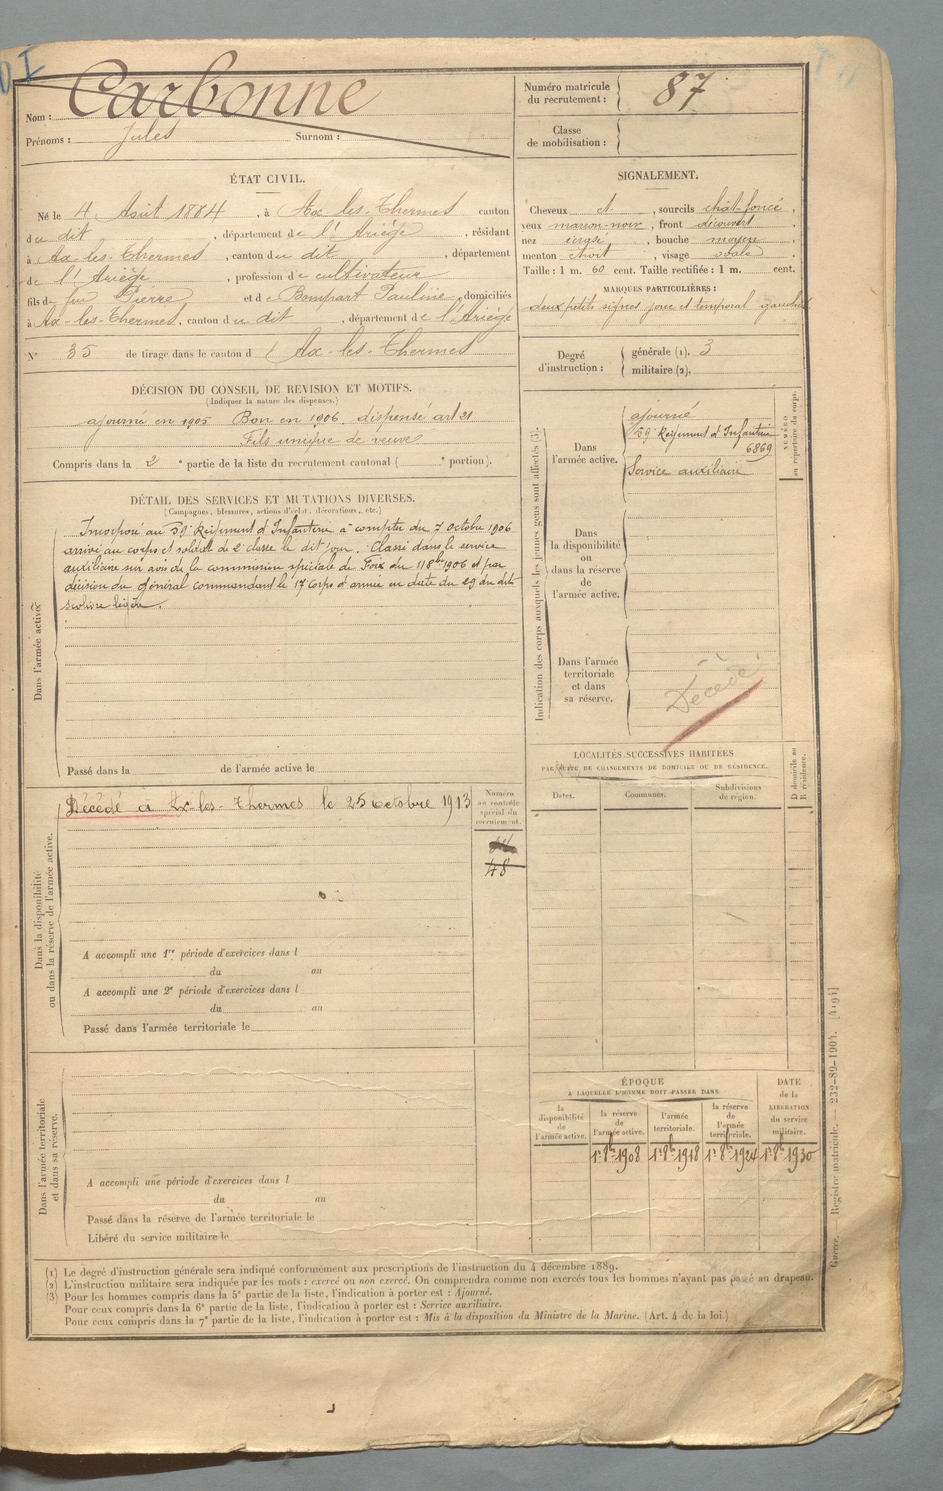 DI
Nom : Carbonne
Prénoms : Jules Surnom :
Numéro matricule du recrutement : 87
Classe de mobilisation :
ÉTAT CIVIL.
Né le 4 Août 1884, à Ax les-Thermes canton
du dit, département de l'Ariège, résidant
à Ax-les-Thermes, canton du dit, département
de l'Ariège, profession de cultivateur
fils de feu Pierre et de Bompart Pauline, domiciliés
à Ax-les-Thermes, canton du dit, département de l'Ariège
N° 35 de tirage dans le canton d Ax-les-Thermes
SIGNALEMENT.
Cheveux et, sourcils chât-foncé,
yeux marron-noir, front découvert,
nez écrasé, bouche moyen
menton étroit, visage ovale.
Taille : 1 m. 60 cent. Taille rectifiée : 1 m. cent.
MARQUES PARTICULIÈRES :
deux petits signes joue et temporal gauches
Degré d'instruction :
générale (1). 3
militaire (2).
DÉCISION DU CONSEIL DE REVISION ET MOTIFS.
(Indiquer la nature des dispenses.)
ajourné en 1905 Bon en 1906. dispensé art 21
Fils unique de veuve
Compris dans la 2e partie de la liste du recrutement cantonal ( e portion).
DÉTAIL DES SERVICES ET MUTATIONS DIVERSES.
(Campagnes, blessures, actions d'éclat, décorations, etc.)
Dans l'armée active
Incorporé au 59e Régiment d'Infanterie à compter du 7 octobre 1906
arrivé au corps et soldat de 2e classe le dit jour. Classé dans le service
auxiliaire sur avis de la commission spéciale de Foix du 11 8bre 1906 et par
décision du Général commandant le 17e Corps d'armée en date du 29 du dit
scoliose légère.
Passé dans la de l'armée active le
Indication des corps auxquels les jeunes gens sont affectés (3).
NUMÉRO au répertoire du corps.
Dans l'armée active.
ajourné
59e Régiment d'Infanterie
6869
Service auxiliaire
Dans la disponibilité ou dans la réserve de l'armée active.
Dans l'armée territoriale et dans sa réserve.
Décédé
LOCALITÉS SUCCESSIVES HABITÉES
PAR SUITE DE CHANGEMENTS DE DOMICILE OU DE RÉSIDENCE.
Dates.
Communes.
Subdivisions de région.
D domicile ou R résidence.
Dans la disponibilité ou dans la réserve de l'armée active.
Décédé à Ax-les-Thermes le 25 octobre 1913
Numéro au contrôle spécial du recrutement.
48
A accompli une 1re période d'exercices dans l
du au
A accompli une 2e période d'exercices dans l
du au
Passé dans l'armée territoriale le
Dans l'armée territoriale et dans sa réserve.
A accompli une période d'exercices dans l
du au
Passé dans la réserve de l'armée territoriale le
Libéré du service militaire le
ÉPOQUE
À LAQUELLE L'HOMME DOIT PASSER DANS
la disponibilité de l'armée active.
la réserve de l'armée active.
l'armée territoriale.
la réserve de l'armée territoriale.
DATE de la LIBÉRATION du service militaire.
1er 8bre 1908 1er 8bre 1918 1er 8bre 1924 1er 8bre 1930
(1) Le degré d'instruction générale sera indiqué conformément aux prescriptions de l'instruction du 4 décembre 1889.
(2) L'instruction militaire sera indiquée par les mots : exercé ou non exercé. On comprendra comme non exercés tous les hommes n'ayant pas passé au drapeau.
(3) Pour les hommes compris dans la 5e partie de la liste, l'indication à porter est : Ajourné.
Pour ceux compris dans la 6e partie de la liste, l'indication à porter est : Service auxiliaire.
Pour ceux compris dans la 7e partie de la liste, l'indication à porter est : Mis à la disposition du Ministre de la Marine. (Art. 4 de la loi.)
Guerre. — Registre matricule. — 232-89-1904. [4194]